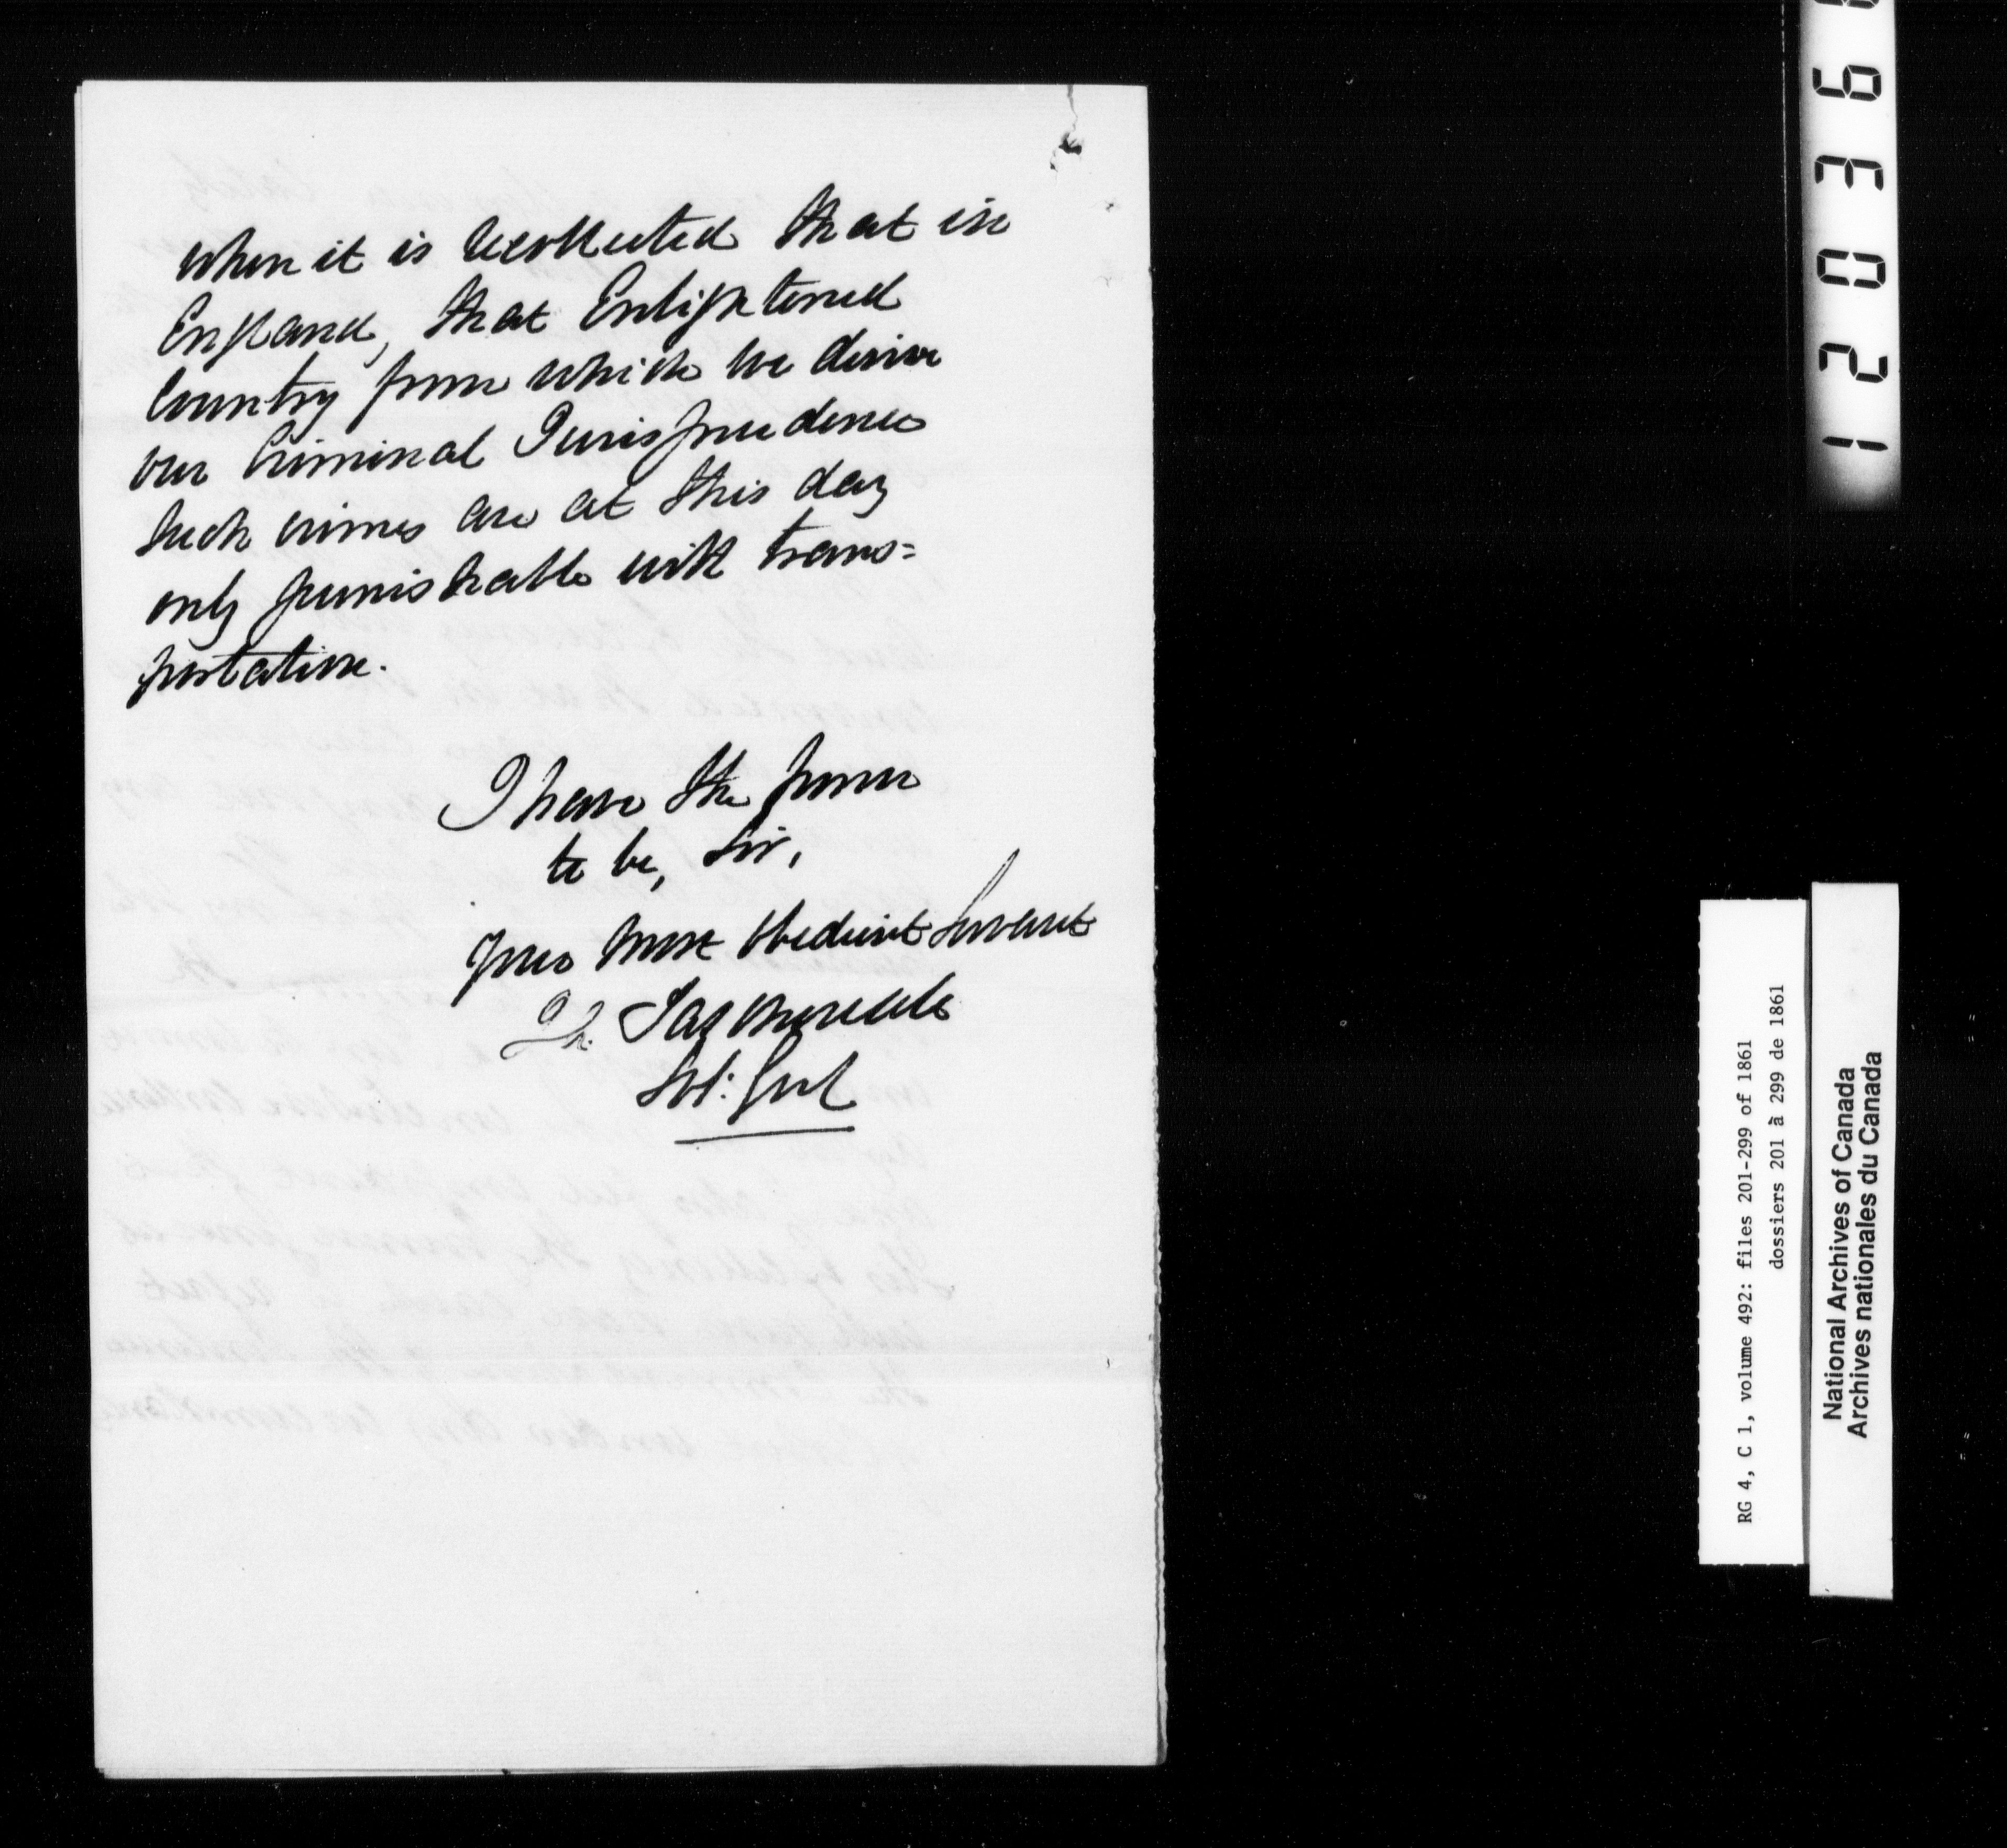 when it is recollected that in
England, that Enlightened
Country from which we derive
our Criminal Jurisprudence
such crimes are at this day
only punishable with trans=
portation.
I have the honor
to be, Sir,
Your most obedient Servant
Sol: Genl
120366
RG 4, C 1, volume 492: files 201-299 of 1861
dossiers 201 à 299 de 1861
National Archives of Canada
Archives nationales du Canada